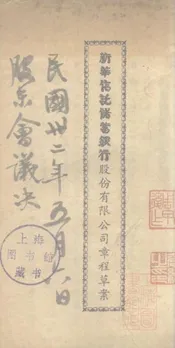 新華信託儲蓄銀行股份有限公司章程草案
民國卅二年五月六日
股東會議決
上海
图书馆
藏书